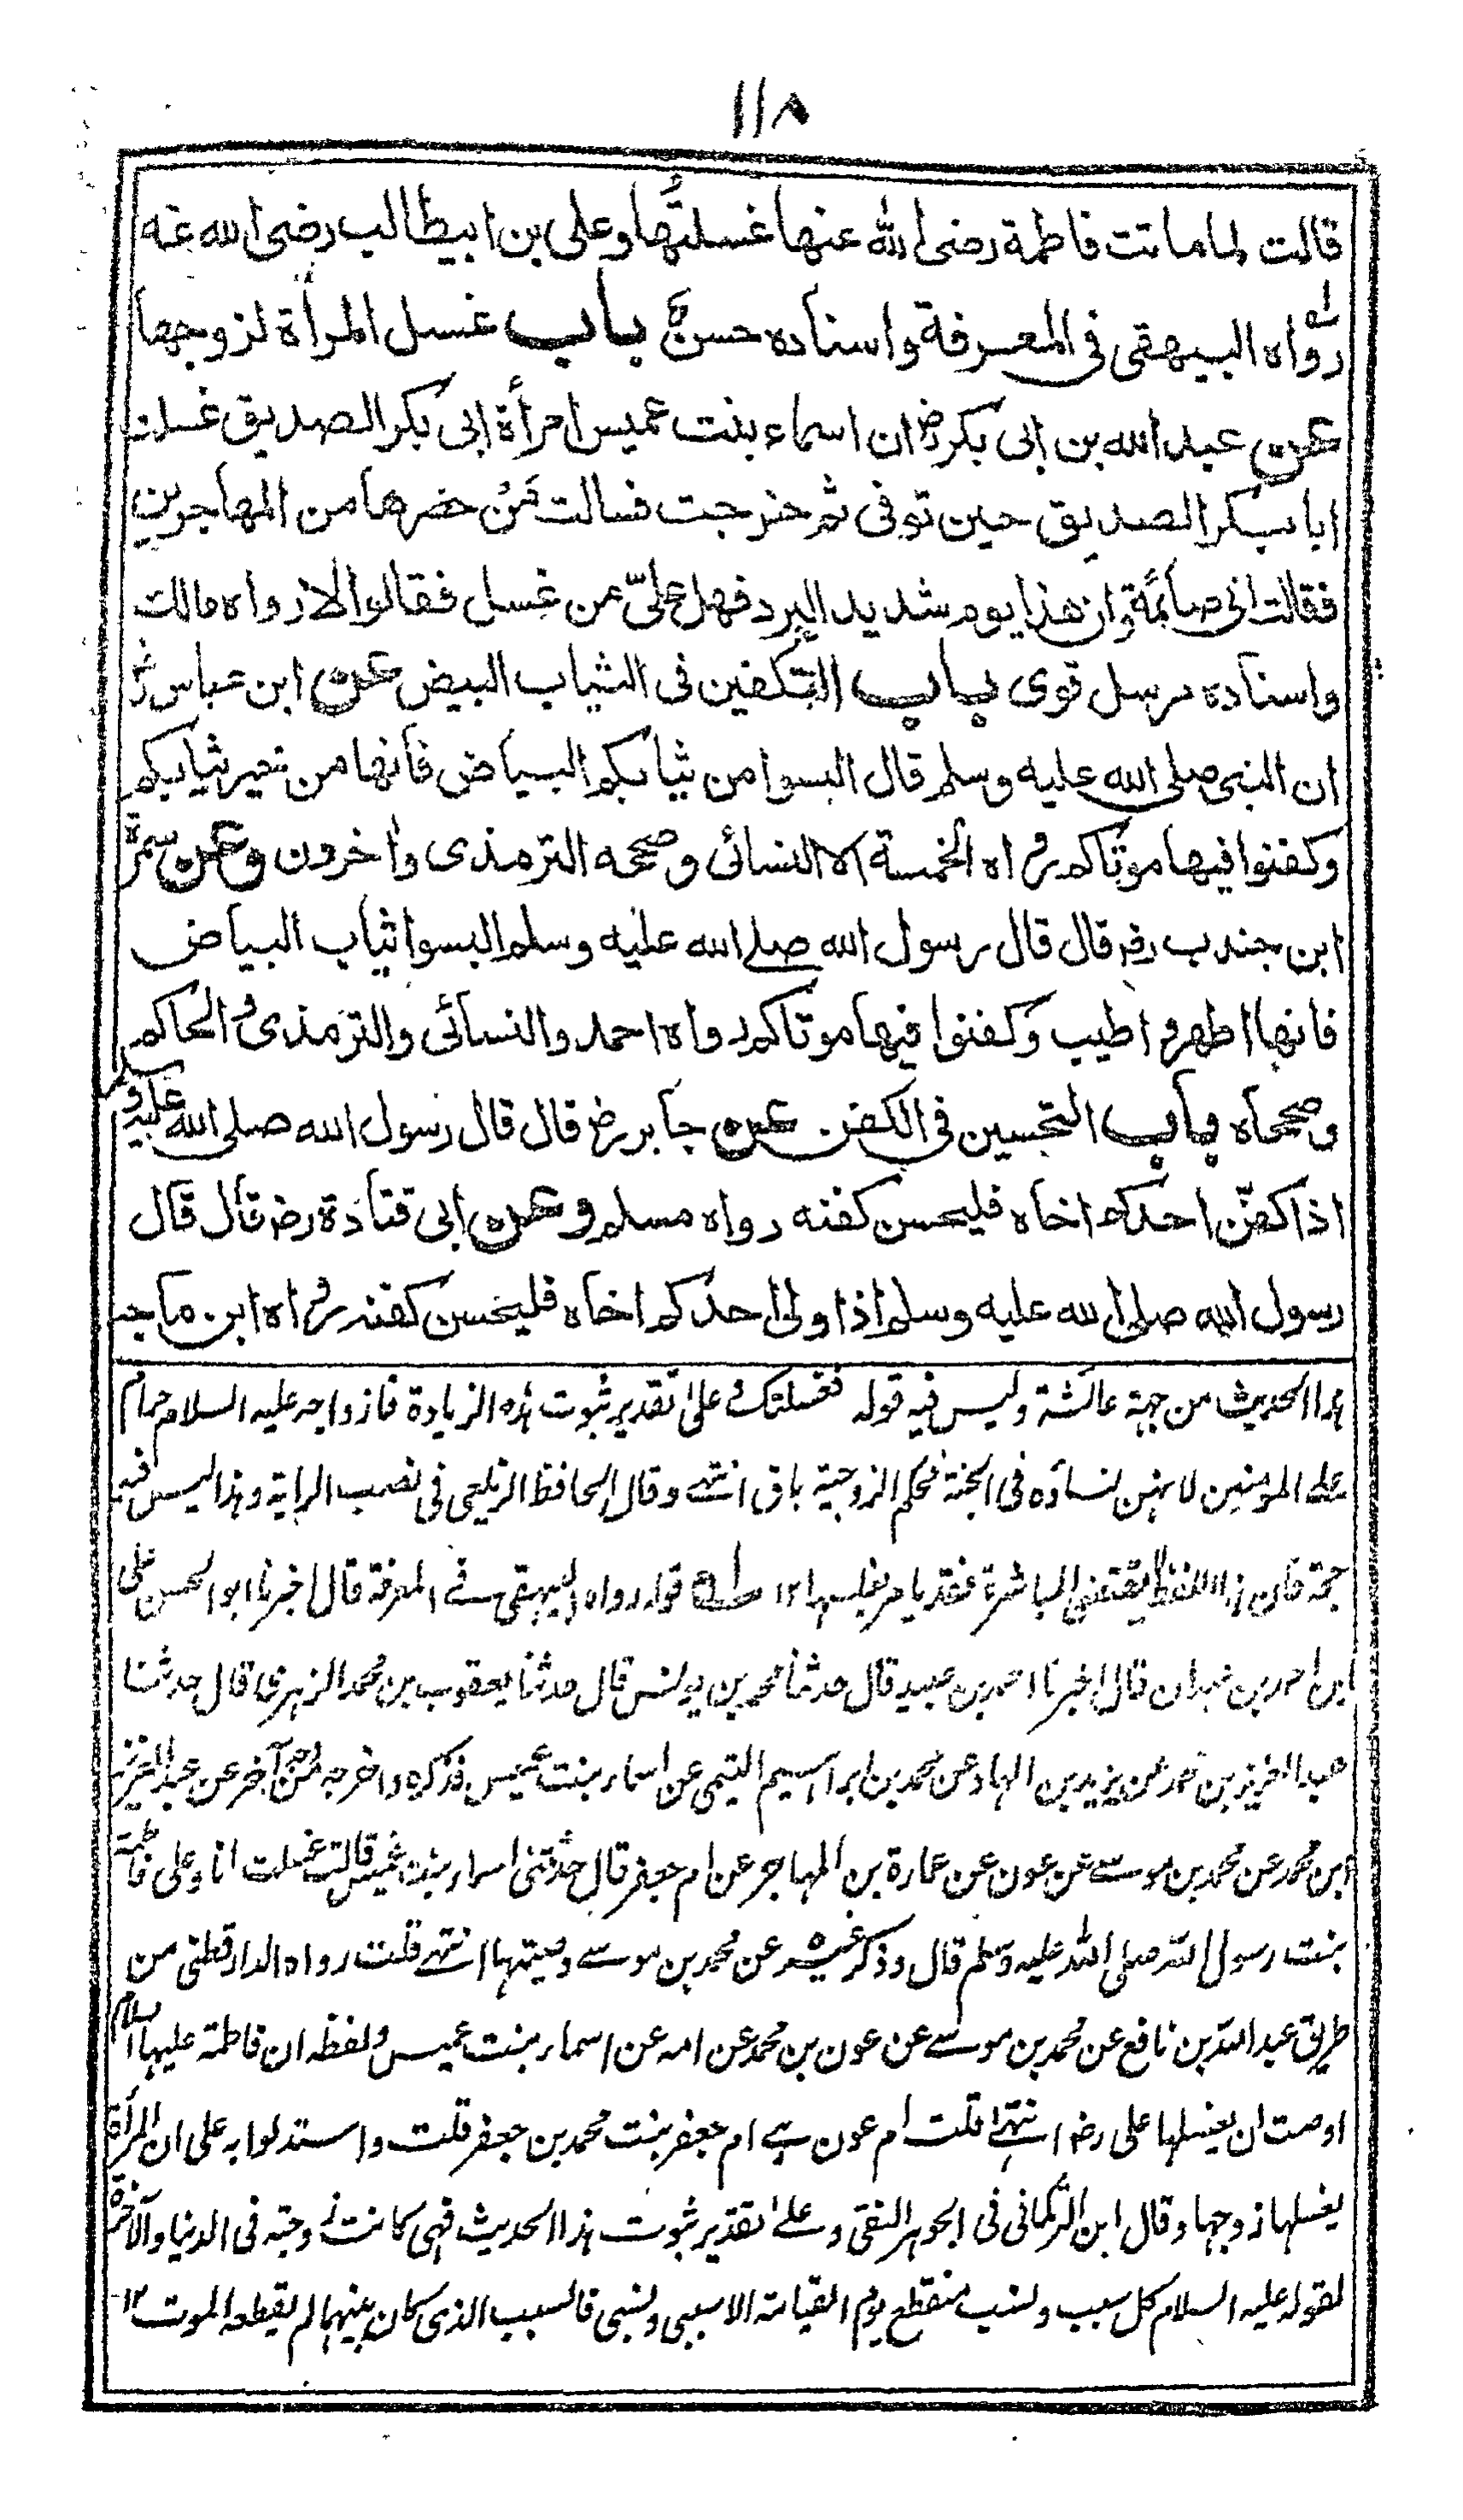 ١١٨
قالت لما ماتت فاطمة رضی الله عنها غسلتُها وعلی بن ابیطالب رضی الله عنه
رواه البیهقی فی المعرفة واسناده حسن باب غسل المرأة لزوجها
عن عبد الله بن ابی بکر رض ان اسماء بنت عمیس امرأة ابی بکر الصدیق غسلت
ابا بکر الصدیق حین توفی ثم خرجت فسالت مَنْ حضرها من المهاجرین
فقالت انی صائمة وان هذا یوم شدید البرد فهل علیّ من غسل فقالوا لا رواه مالك
واسناده مرسل قوی باب التکفین فی الثیاب البیض عن ابن عباس رض
ان النبی صلی الله علیه وسلم قال البسوا من ثیابکم البیاض فانها من خیر ثیابکم
وکفنوا فیها موتاکم رواه الخمسة الا النسائی وصححه الترمذی واخرون وعن سمرة
ابن جندب رض قال قال رسول الله صلی الله علیه وسلم البسوا ثیاب البیاض
فانها اطهر و اطیب وکفنوا فیها موتاکم رواه احمد والنسائی والترمذی والحاکم
وصححاه باب التحسین فی الکفن عن جابر رض قال قال رسول الله صلی الله علیه وسلم
اذا کفّن احدکم اخاه فلیحسن کفنه رواه مسلم وعن ابی قتادة رض قال قال
رسول الله صلی الله علیه وسلم اذا ولی احدکم اخاه فلیحسن کفنه رواه ابن ماجه
هذا الحدیث من جهة عائشة ولیس فیه قوله فغسلتك وعلی تقدیر ثبوت هذه الزیادة فازواجه علیه السلام حرام
علی المؤمنین لانهن نساؤه فی الجنة فحکم الزوجیة باق انتهی وقال الحافظ الزیلعی فی نصب الرایة وهذا لیس فیه
حجة فان هذا اللفظ لا یقتضی المباشرة فقد یامر بغسلها ١٢ قوله رواه البیهقی فی المعرفة قال اخبرنا ابو الحسن علی
ابن احمد بن عبدان قال اخبرنا احمد بن عبید قال حدثنا محمد بن یونس قال حدثنا یعقوب بن محمد الزهری قال حدثنا
عبد العزیز بن محمد عن یزید بن الهاد عن محمد بن ابراهیم التیمی عن اسماء بنت عمیس فذکره واخرجه من وجه آخر عن عبد العزیز
ابن محمد عن محمد بن موسی عن عون عن عمارة بن المهاجر عن ام جعفر قال حدثتنی اسماء بنت عمیس قالت غسلت انا وعلی فاطمة
بنت رسول الله صلی الله علیه وسلم قال وذکر غیره عن محمد بن موسی وصیتها انتهی قلت رواه الدارقطنی من
طریق عبد الله بن نافع عن محمد بن موسی عن عون بن محمد عن امه عن اسماء بنت عمیس ولفظه ان فاطمة علیها السلام
اوصت ان یغسلها علی رض انتهی قلت ام عون هی ام جعفر بنت محمد بن جعفر قلت واستدلوا به علی ان المرأة
یغسلها زوجها وقال ابن الترکمانی فی الجوهر النقی وعلی تقدیر ثبوت هذا الحدیث فهی کانت زوجته فی الدنیا والآخرة
لقوله علیه السلام کل سبب ونسب منقطع یوم القیامة الا سببی ونسبی فالسبب الذی کان بینهما لم یقطعه الموت ١٢